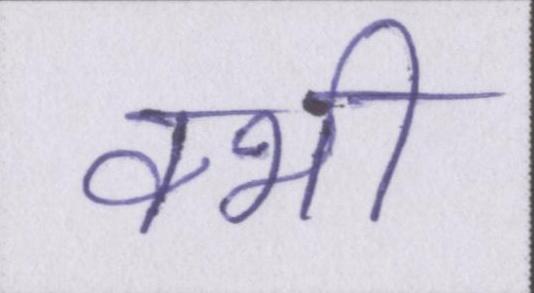 कभी